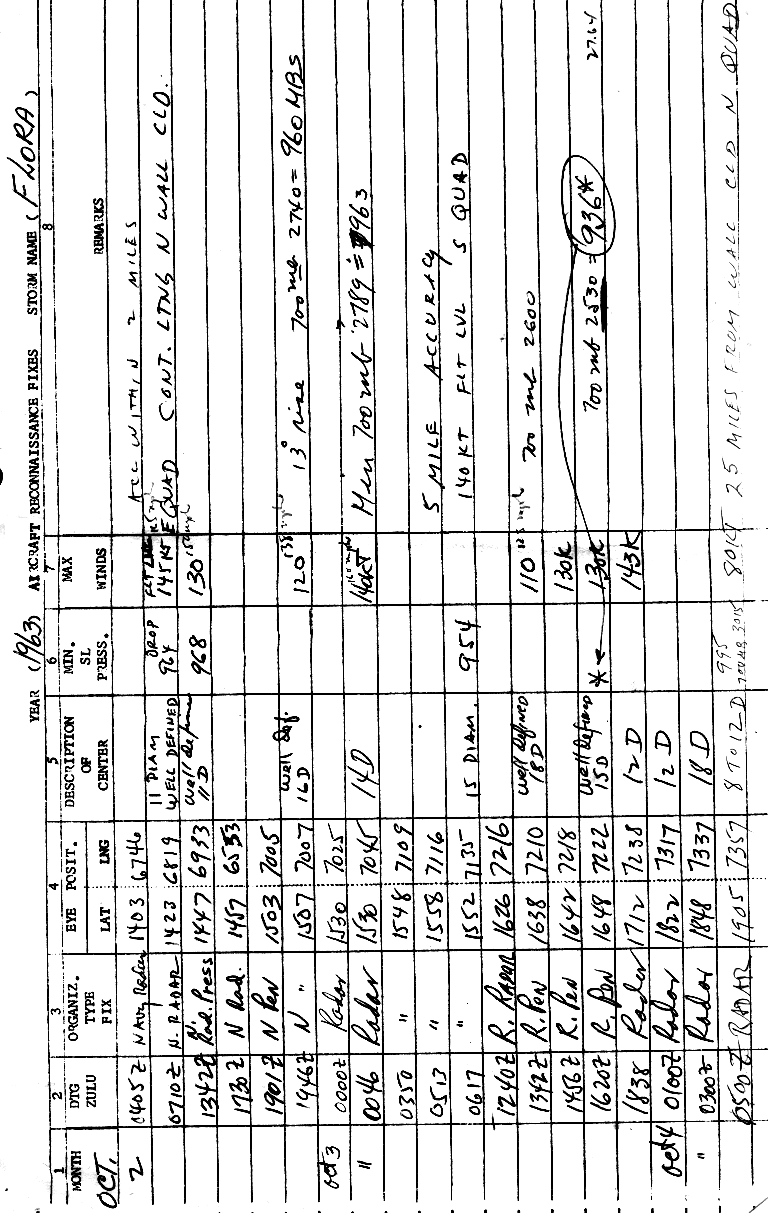 YEAR (1963) AIRCRAFT RECONNAISSANCE FIXES STORM NAME (FLORA)
1 2 3 4 5 6 7 8
MONTH DTG ZULU ORGANIZ. TYPE FIX EYE POSIT. LAT LNG DESCRIPTION OF CENTER MIN. SL PRESS. MAX WINDS REMARKS
OCT.
2 0405Z NAvy Radar 1403 6746 ACC WITHIN 2 MILES
0710Z N. RADAR 1423 6819 11 DIAM WELL DEFINED DROP 964 FLT LVL 145 KT E QUAD CONT. LTNG N WALL CLD.
1342Z N. Rad. Press 1447 6933 well define 11 D 968 130 150 mph
1730Z N Rad. 1457 6553
1901Z N Pen 1503 7005
1946Z N " 1507 7007 well def. 16 D 120 138 mph 13° rise 700 mb 2740 = 960 MBS
Oct 3 0000Z Radar 1530 7025
" 0046 Radar 1530 7045 14 D 140KT Min 700 mb 2789 = 963
0350 " 1548 7109
0513 " 1558 7116 5 MILE ACCURACY
0617 " 1552 7135 15 DIAM. 954 140 KT FLT LVL S QUAD
1240Z R. RADAR 1626 7216
1342Z R. Pen 1638 7210 well defined 18 D 110 mph 700 mb 2600
1456Z R. Pen 1642 7218 130K
1620Z R. Pen 1648 7222 well defined 15 D * 130K 700 mb 2530 = 936* 27.64
1838 Radar 1712 7238 12 D 143K
Oct 4 0100Z Radar 1822 7317 12 D
" 0300Z Radar 1848 7337 18 D
0500Z RADAR 1905 7357 8 TO 12 D 995 700 MB 3015 80KT 25 MILES FROM WALL CLD N QUAD